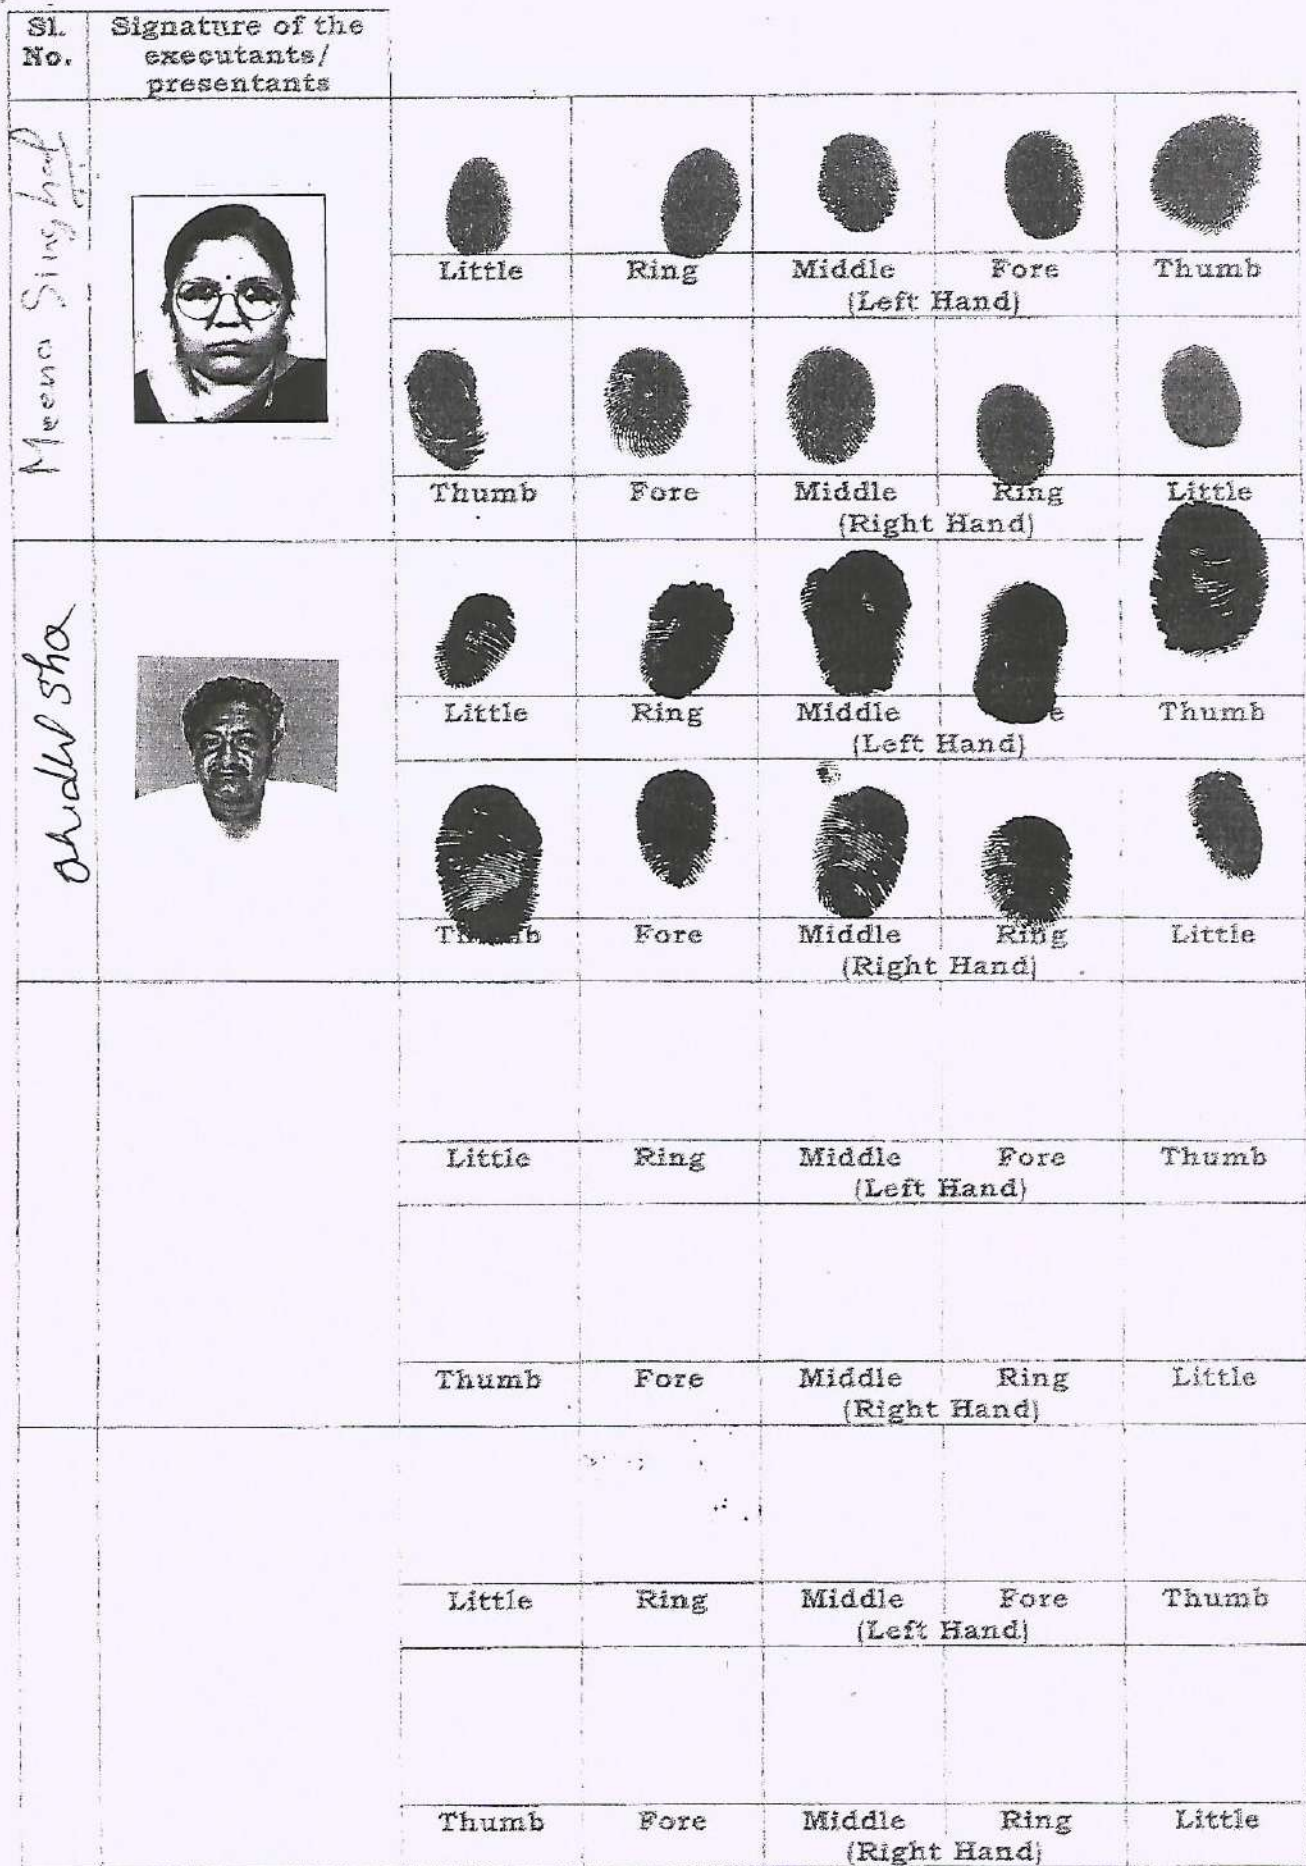 Sl.
No.
Signature of the
executants/
presentants
Meena Singhal
Little Ring Middle Fore Thumb
(Left Hand)
Thumb Fore Middle Ring Little
(Right Hand)
Sha
Little Ring Middle Thumb
(Left Hand)
Thumb Fore Middle Ring Little
(Right Hand)
Little Ring Middle Fore Thumb
(Left Hand)
Thumb Fore Middle Ring Little
(Right Hand)
Little Ring Middle Fore Thumb
(Left Hand)
Thumb Fore Middle Ring Little
(Right Hand)